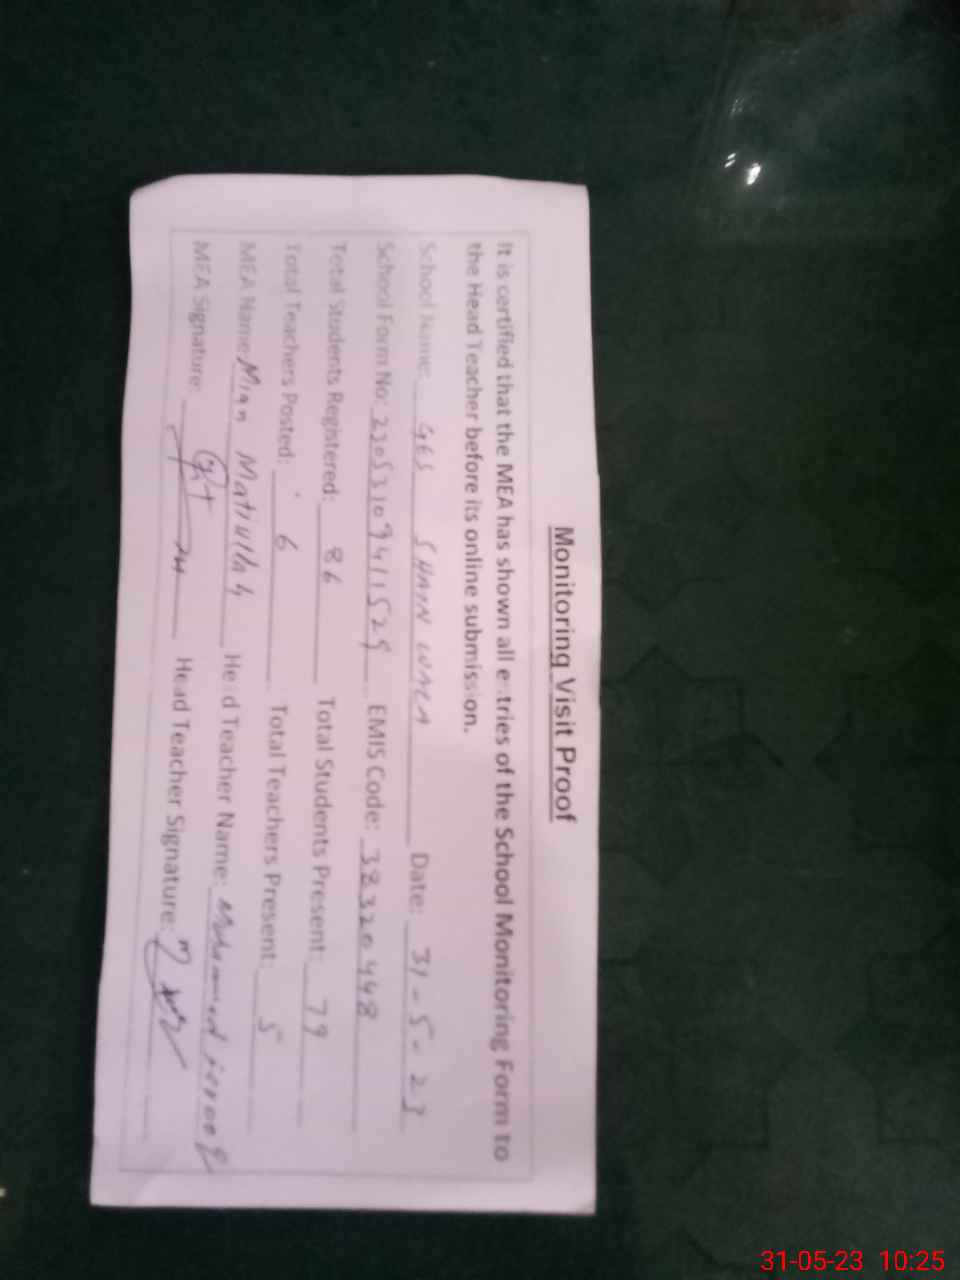 Monitoring Visit Proof
It is certified that the MEA has shown all e tries of the School Monitoring Form to
the Head Teacher before its online submission.
School Name: GES SHAIN WALA Date: 31-5-23
School Form No: 23053109411529 EMIS Code: 38320448
Total Students Registered: 86 Total Students Present: 79
Total Teachers Posted: 6 Total Teachers Present: 5
MEA Name: Mian Matiullah Head Teacher Name: Mohammed
MEA Signature: Head Teacher Signature:
31-05-23 10:25